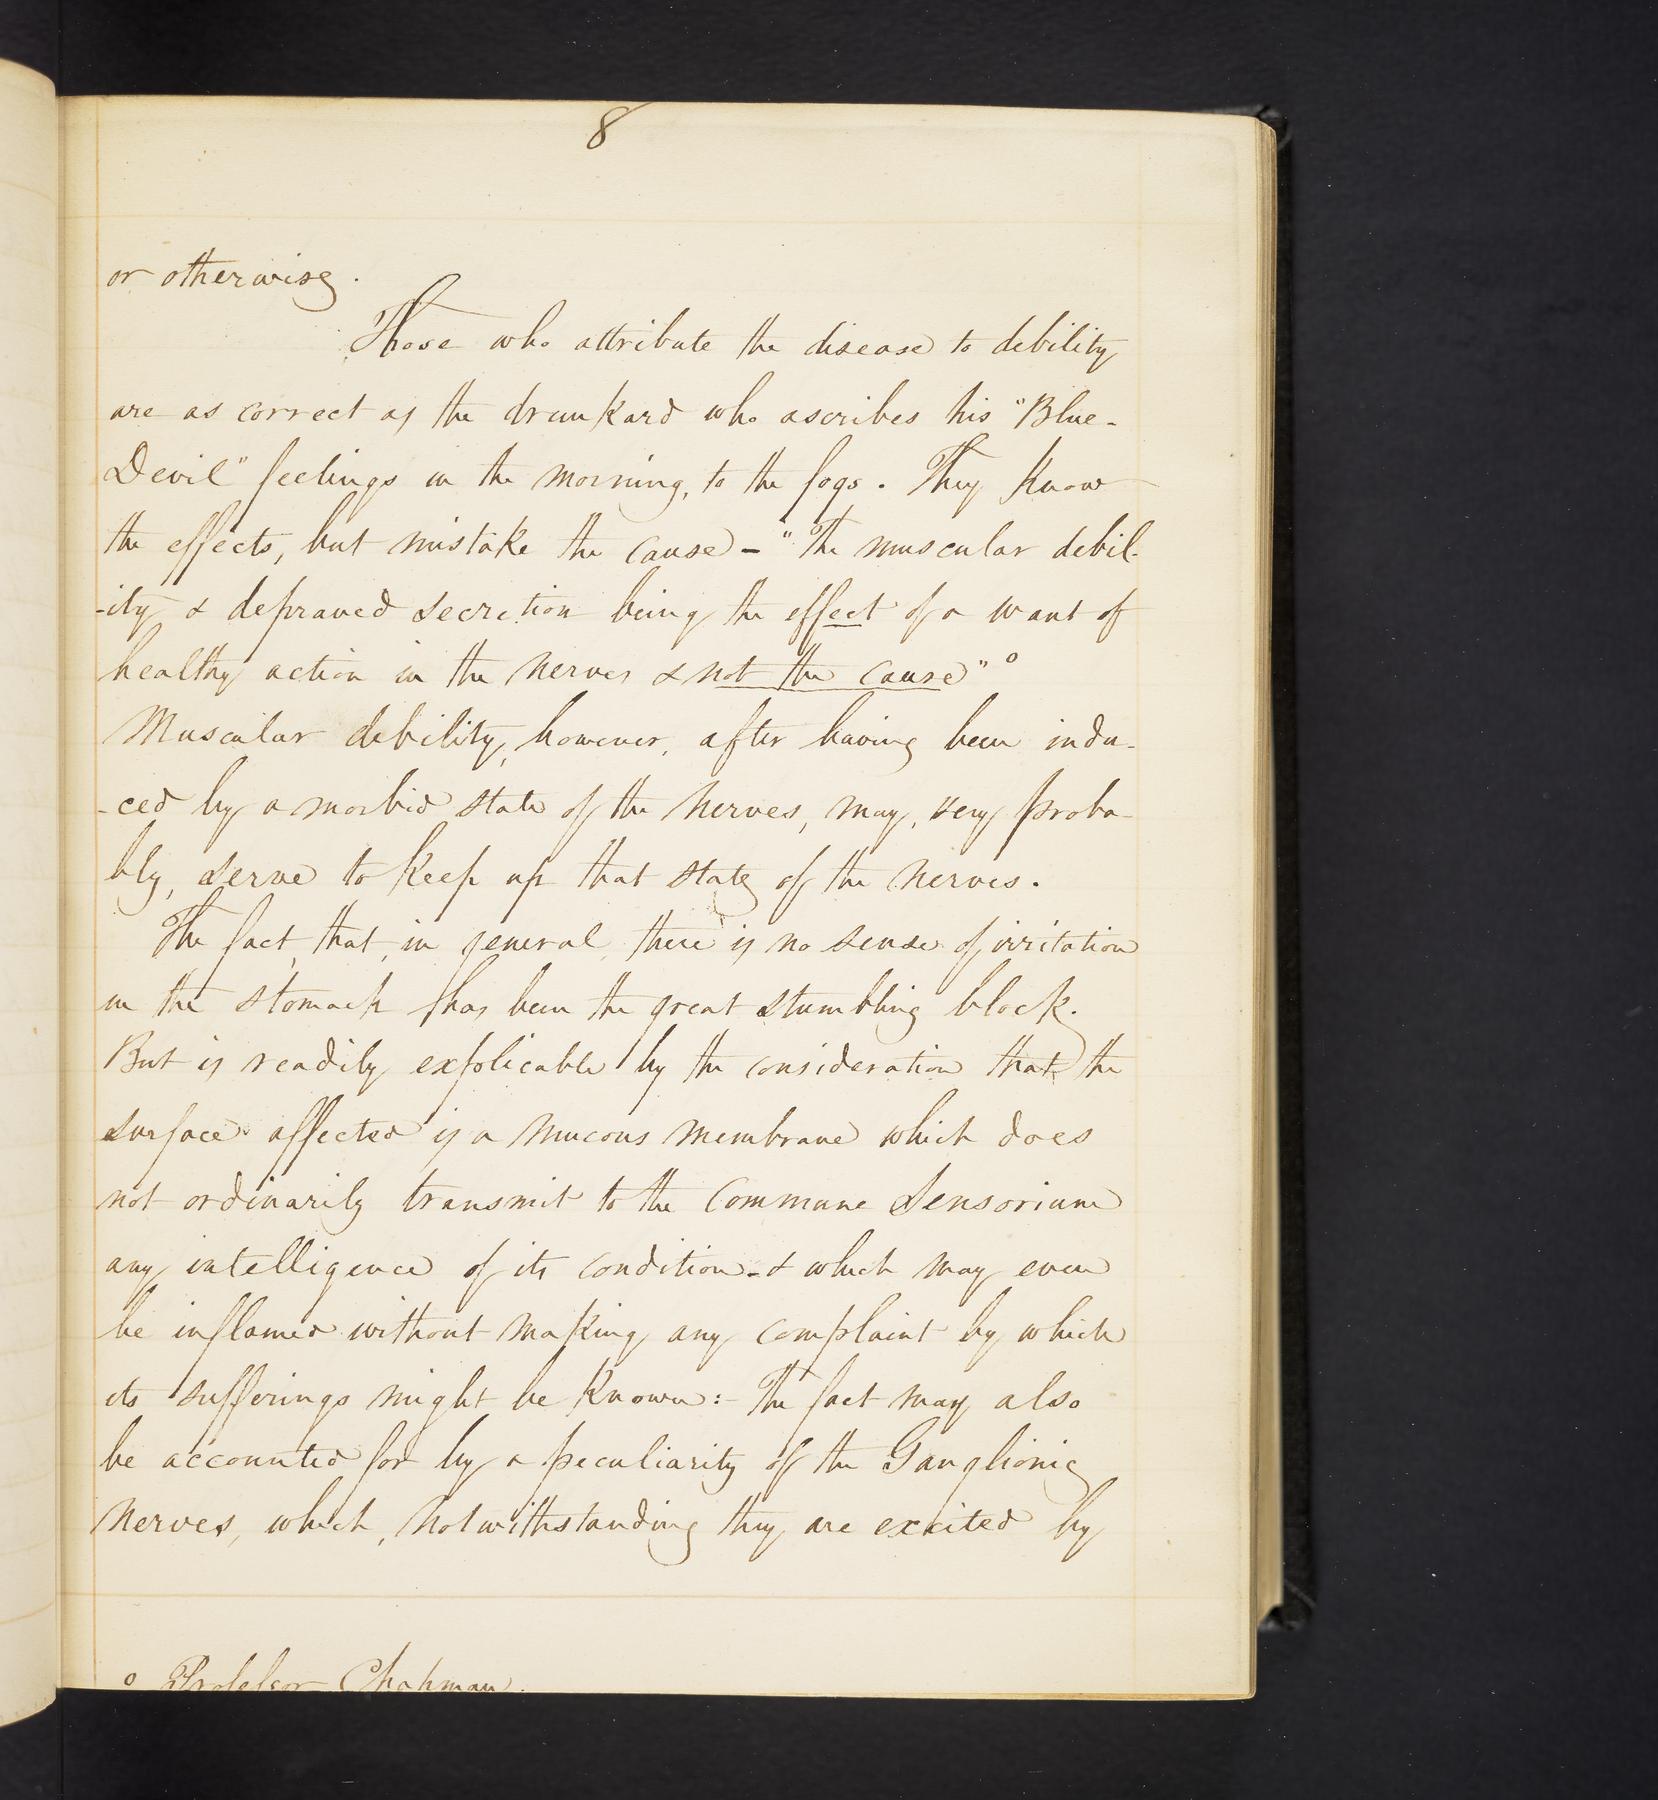 8
or otherwise.
Those who attribute the disease to debility
are as correct as the drunkard who ascribes his "Blue-
Devil" feelings in the morning, to the fogs. They know
the effects, but mistake the cause - "The muscular debil-
-ity & depraved secretion being the effect of a want of
healthy action in the nerves & not the cause" °
Muscular debility, however, after having been indu-
-ced by a morbid state of the nerves, may, very proba-
bly, serve to keep up that state of the nerves.
The fact, that, in general, there is no sense of irritation
in the stomach has been the great stumbling block.
But is readily explicable by the consideration that the
surface affected is a mucous membrane which does
not ordinarily transmit to the Commune Sensorium
any intelligence of its condition - & which may even
be inflamed without making any complaint by which
its sufferings might be known: - The fact may also
be accounted for by a peculiarity of the Ganglionic
nerves, which, notwithstanding they are excited by
° Professor Chapman.